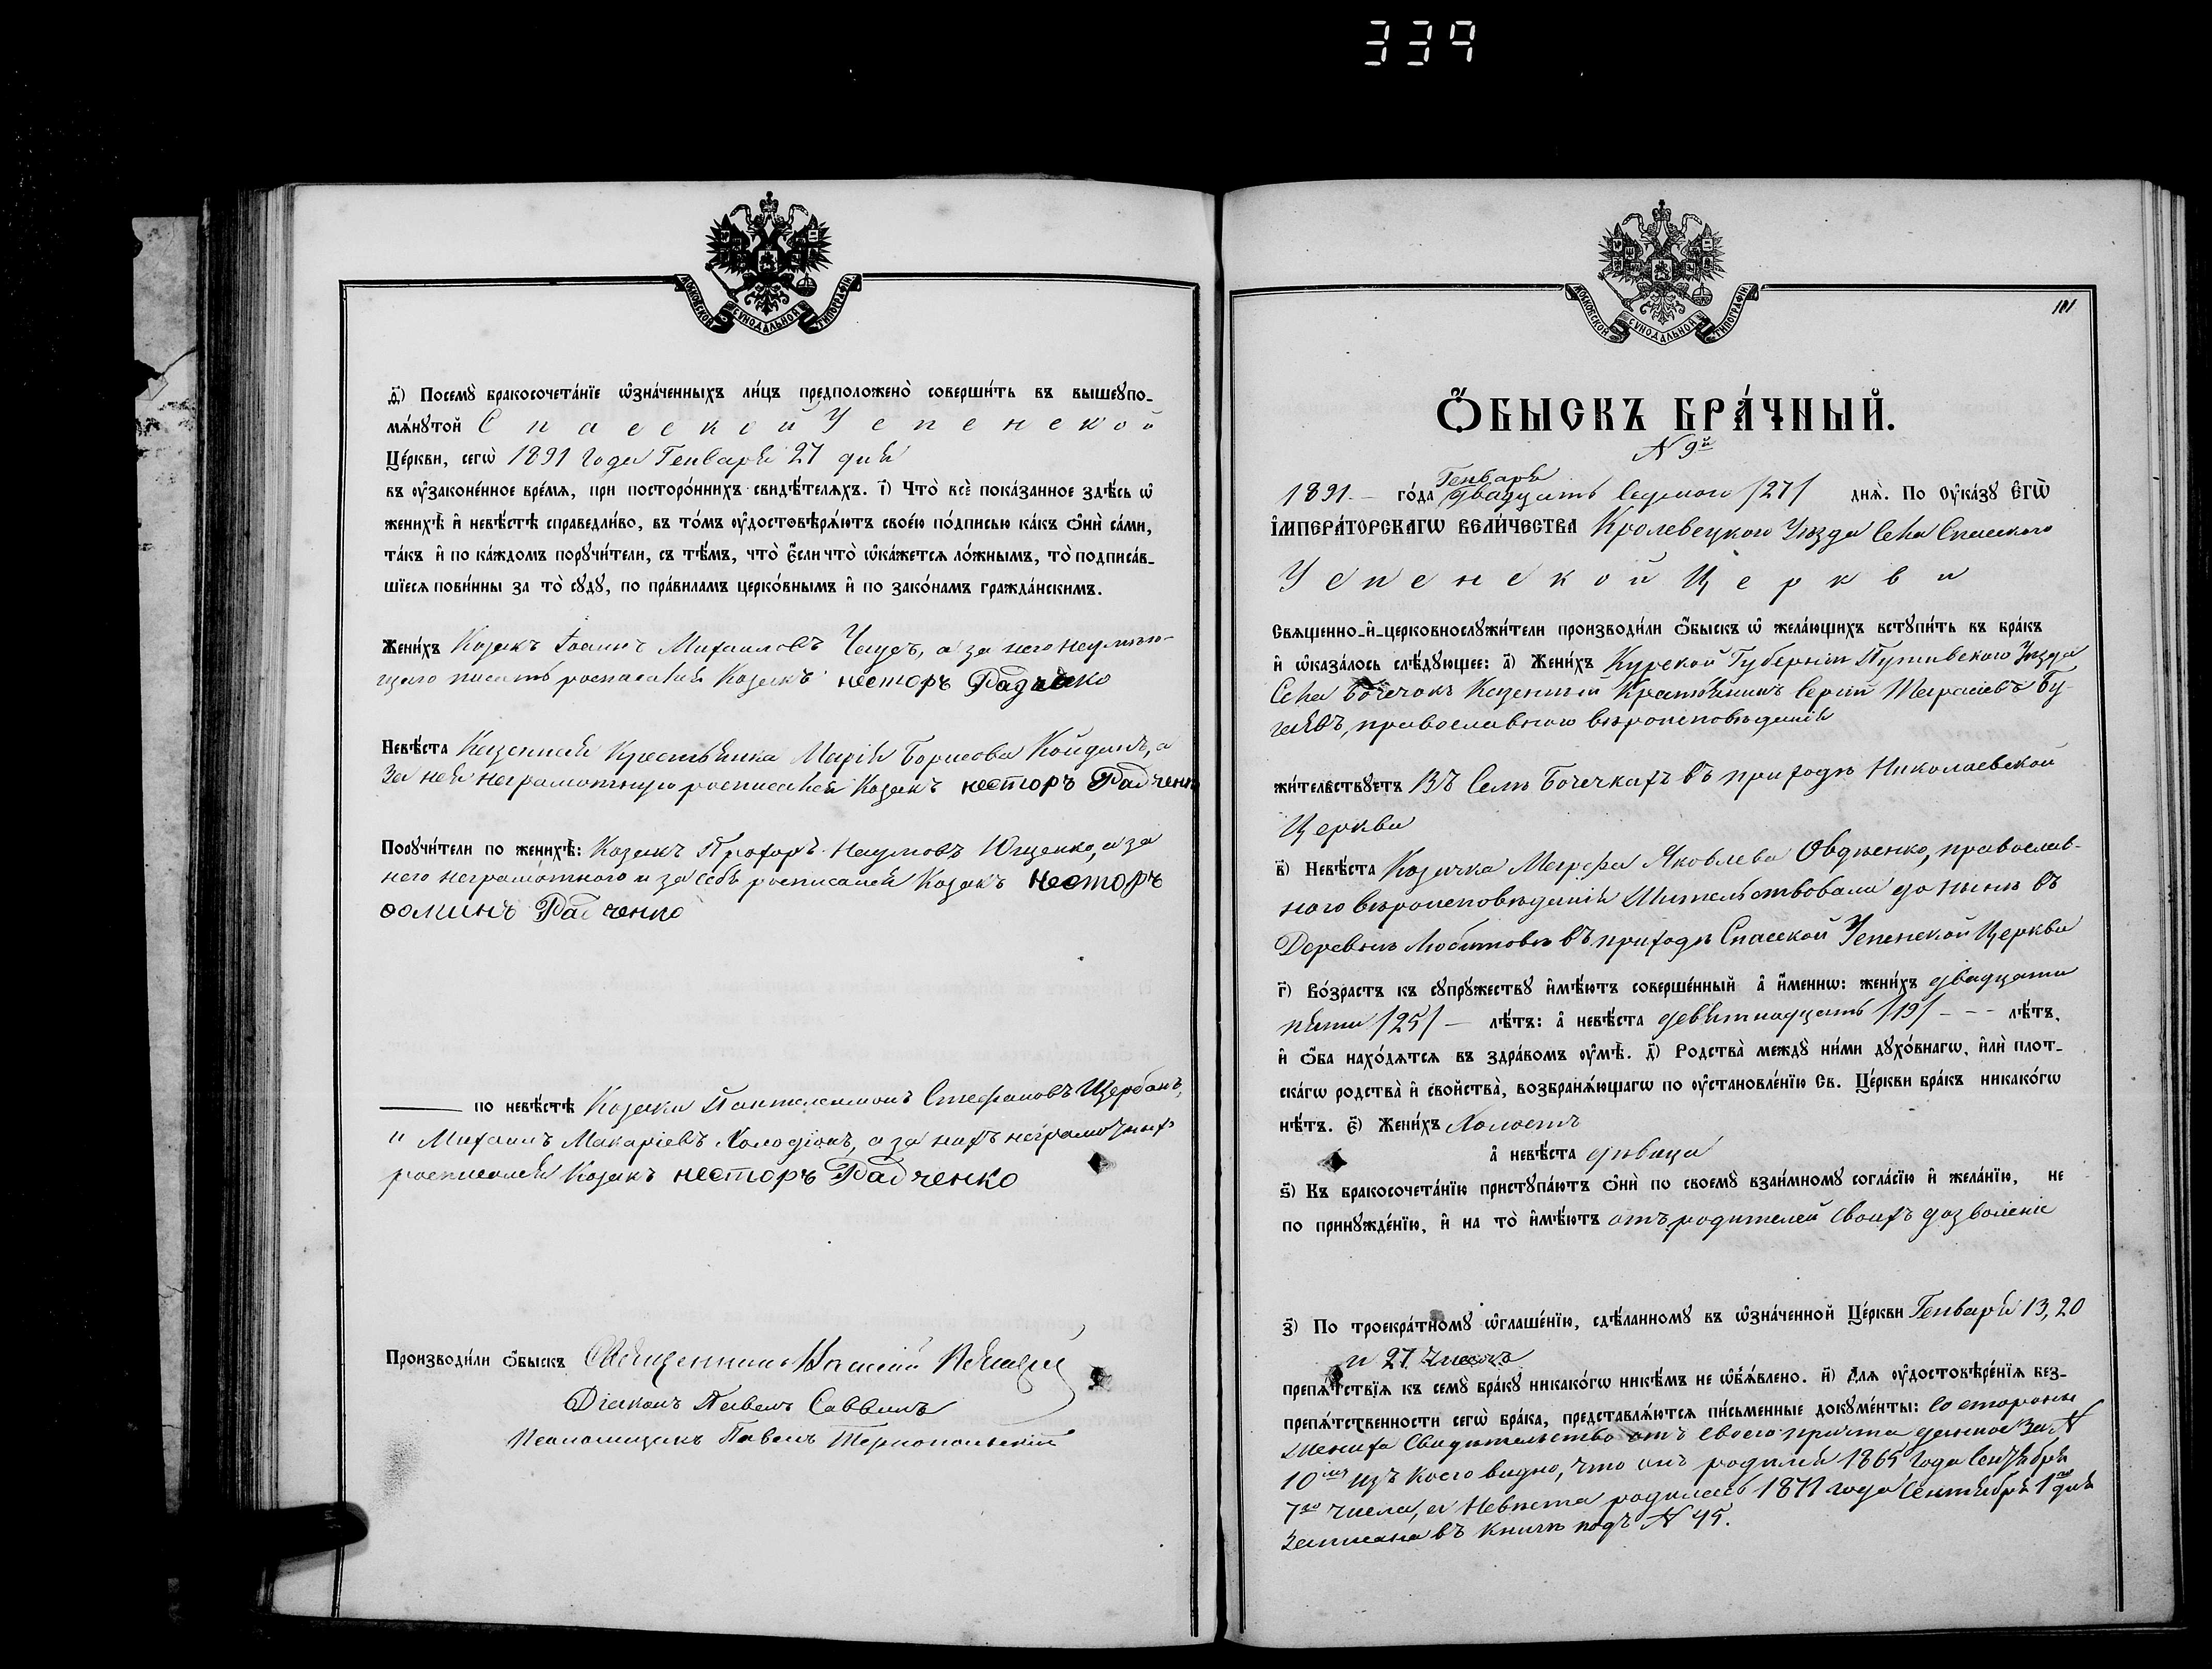 339
МОСКОВСКОЙ СУНОДАЛЬНОЙ ТИПОГРАФІИ.
д҃) Посемꙋ̀ бракосочета́нїе ѡ҆зна́ченныхъ ли́цъ предположено̀ соверши́ть въ вышеꙋпо-
мѧ́нꙋтой Спасской Успенской
Це́ркви, сегѡ̀ 1891 года Генваря 27 дня
въ ᲂу҆законе́нное вре́мѧ, при посторо́ннихъ свидѣ́телѧхъ. і҃) Что̀ всѐ пока́занное здѣ́сь ѡ҆
женихѣ̀ и҆ невѣ́стѣ справедли́во, въ то́мъ ᲂу҆достовѣрѧ́ютъ свое́ю по́дписью ка́къ ѻ҆нѝ са́ми,
та́къ и҆ по ка́ждомъ порꙋчи́тели, съ тѣ́мъ, что̀ є҆́сли что̀ ѡ҆ка́жетсѧ ло́жнымъ, то̀ подписа́в-
шїесѧ пови́нны за то̀ сꙋдꙋ̀, по пра́виламъ церко́внымъ и҆ по зако́намъ гражда́нскимъ.
Жени́хъ Козакъ Іоаннъ Михаиловъ Чацъ, а за него неумѣю-
щаго писать росписался Козакъ несторъ Радченко
Невѣ́ста Казенная Крестьянка Марія Борисова Койданъ, а
за нея неграмотную росписался Козакъ несторъ Радченк
Порꙋчи́тели по женихѣ̀: Козакъ Прохоръ Наумовъ Ющенко, а за
него неграмотного и за себя росписался Козакъ несторъ
ѳоминъ Радченко
по невѣ́стѣ Козаки Пантелеимонъ Стефановъ Щербакъ,
и Михаилъ Макаріевъ Холодіонъ, а за нихъ неграмотныхъ
росписался Козакъ несторъ Радченко
Производи́ли ѻ҆́быскъ Священникъ
Діаконъ Павелъ Саввинъ
Псаломщикъ Павелъ Тернопольскій
МОСКОВСКОЙ СУНОДАЛЬНОЙ ТИПОГРАФІИ.
181
Ѻ҆́БЫСКЪ БРА́ЧНЫЙ.
N 9й
Генваря
1891 — го́да двадцать седмого /27/ днѧ̀. По Оука́зꙋ Є҆гѡ̀
І҆мпера́торскагѡ вели́чества Кролевецкого Уѣзда Села Спасского
Успенской Церкви
Свѧщенно-и҆-церковнослꙋжи́тели производи́ли ѻ҆́быскъ ѡ҆ жела́ющихъ встꙋпи́ть въ бра́къ
и҆ ѡ҆каза́лось слѣ́дꙋющее: а҃) Жени́хъ Курской Губерніи Путивского Уѣзда
Села Бочечокъ Казенный Крестьянинъ Сергій Тарасіевъ Бу-
гаевъ, православного вѣроисповѣданія
жи́тельствꙋетъ Въ Селѣ Бочечкахъ въ приходѣ Николаевской
Церкви
в҃) Невѣ́ста Козачка Марфа Яковлева Овдѣенко, православ-
ного вѣроисповѣданія Жительствовала до нынѣ въ
Деревнѣ Любитовѣ въ приходѣ Спасской Успенской Церкви
г҃) Во́зрастъ къ сꙋпрꙋ́жествꙋ и҆мѣ́ютъ соверше́нный а҆ и҆́меннѡ: жени́хъ двадцати
пяти /25/ — лѣ́тъ: а҆ невѣ́ста девятнадцать /19/ - - - лѣ́тъ,
и҆ ѻ҆́ба нахо́дѧтсѧ въ здра́вомъ ᲂу҆мѣ̀. д҃) Родства̀ междꙋ̀ ни́ми дꙋхо́внагѡ, и҆лѝ плот-
ска́гѡ родства̀ и҆ сво́йства, возбранѧ́ющагѡ по ᲂу҆становле́нїю Св. Це́ркви бра́къ никако́гѡ
нѣ́тъ. є҃) Жени́хъ Холостъ
а҆ невѣ́ста дѣвица
ѕ҃) Къ бракосочета́нїю пристꙋпа́ютъ ѻ҆нѝ по своемꙋ̀ взаи́мномꙋ согла́сїю и҆ жела́нїю, не
по принꙋжде́нїю, и҆ на то̀ и҆мѣ́ютъ отъ родителей своихъ дозволеніе
з҃) По троекра́тномꙋ ѡ҆глаше́нїю, сдѣ́ланномꙋ въ ѡ҆зна́ченной Це́ркви Генваря 13, 20
и 27 чиселъ
препѧ́тствїѧ къ семꙋ̀ бра́кꙋ никако́гѡ никѣ́мъ не ѡ҆б̾ѧ́влено. и҃) Длѧ ᲂу҆достовѣре́нїѧ без-
препѧ́тственности сегѡ̀ бра́ка, представлѧ́ютсѧ пи́сьменные докꙋме́нты: Со стороны
Жениха Свидѣтельство отъ своего причта данное за N
10мъ изъ коего видно, что онъ родился 1865 года Сентября
7го числа, а Невѣста родилась 1871 года Сентября 1го дня
Записана въ книгѣ подъ N 45.